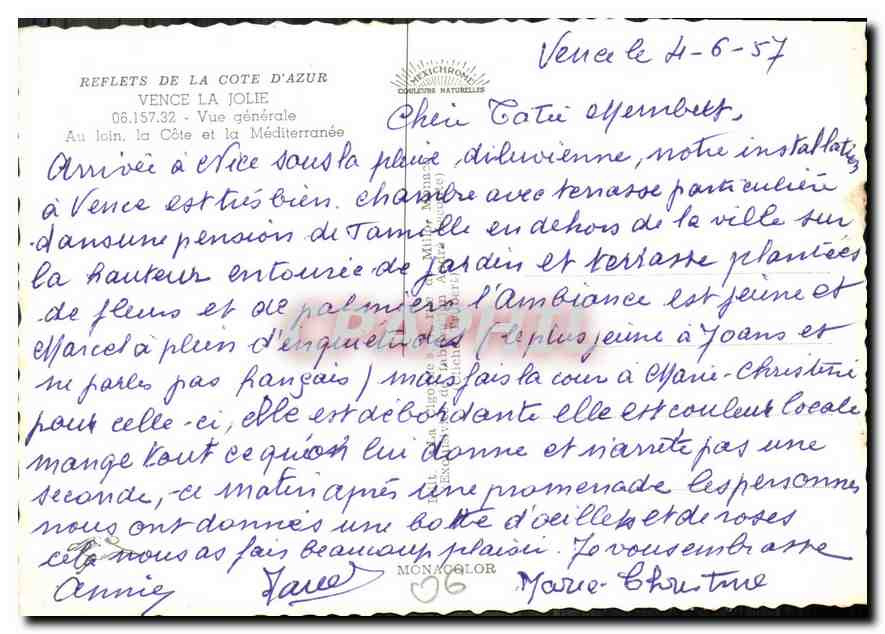 Vence le 4-6-57
REFLETS DE LA COTE D'AZUR
VENCE LA JOLIE
06.157.32 - Vue générale
Au loin, la Côte et la Méditerranée
MEXICHROME
COULEURS NATURELLES
Chère Tatie
Arrivée à Nice sous la pluie diluvienne, notre installation
à Vence est très bien. chambre avec terrasse particulière
dans une pension de famille en dehors de la ville sur
la hauteur entourée de jardin et terrasse plantées
de fleurs et de palmiers l'Ambiance est jeune et
Marcel à plein d'inquietudes (le plus jeune à 70 ans et
ne parles pas français) mais fais la cour à Marie-Christine
pour celle-ci, elle est débordante elle est couleur locale
mange tout ce qu'on lui donne et n'arrête pas une
seconde, - ce matin après une promenade les personnes
nous ont donnés une botte d'oeillets et de roses
cela nous as fais beaucoup plaisir. Je vous embrasse
Annie Marcel Marie-Christine
MONACOLOR
06
CPAPHIL